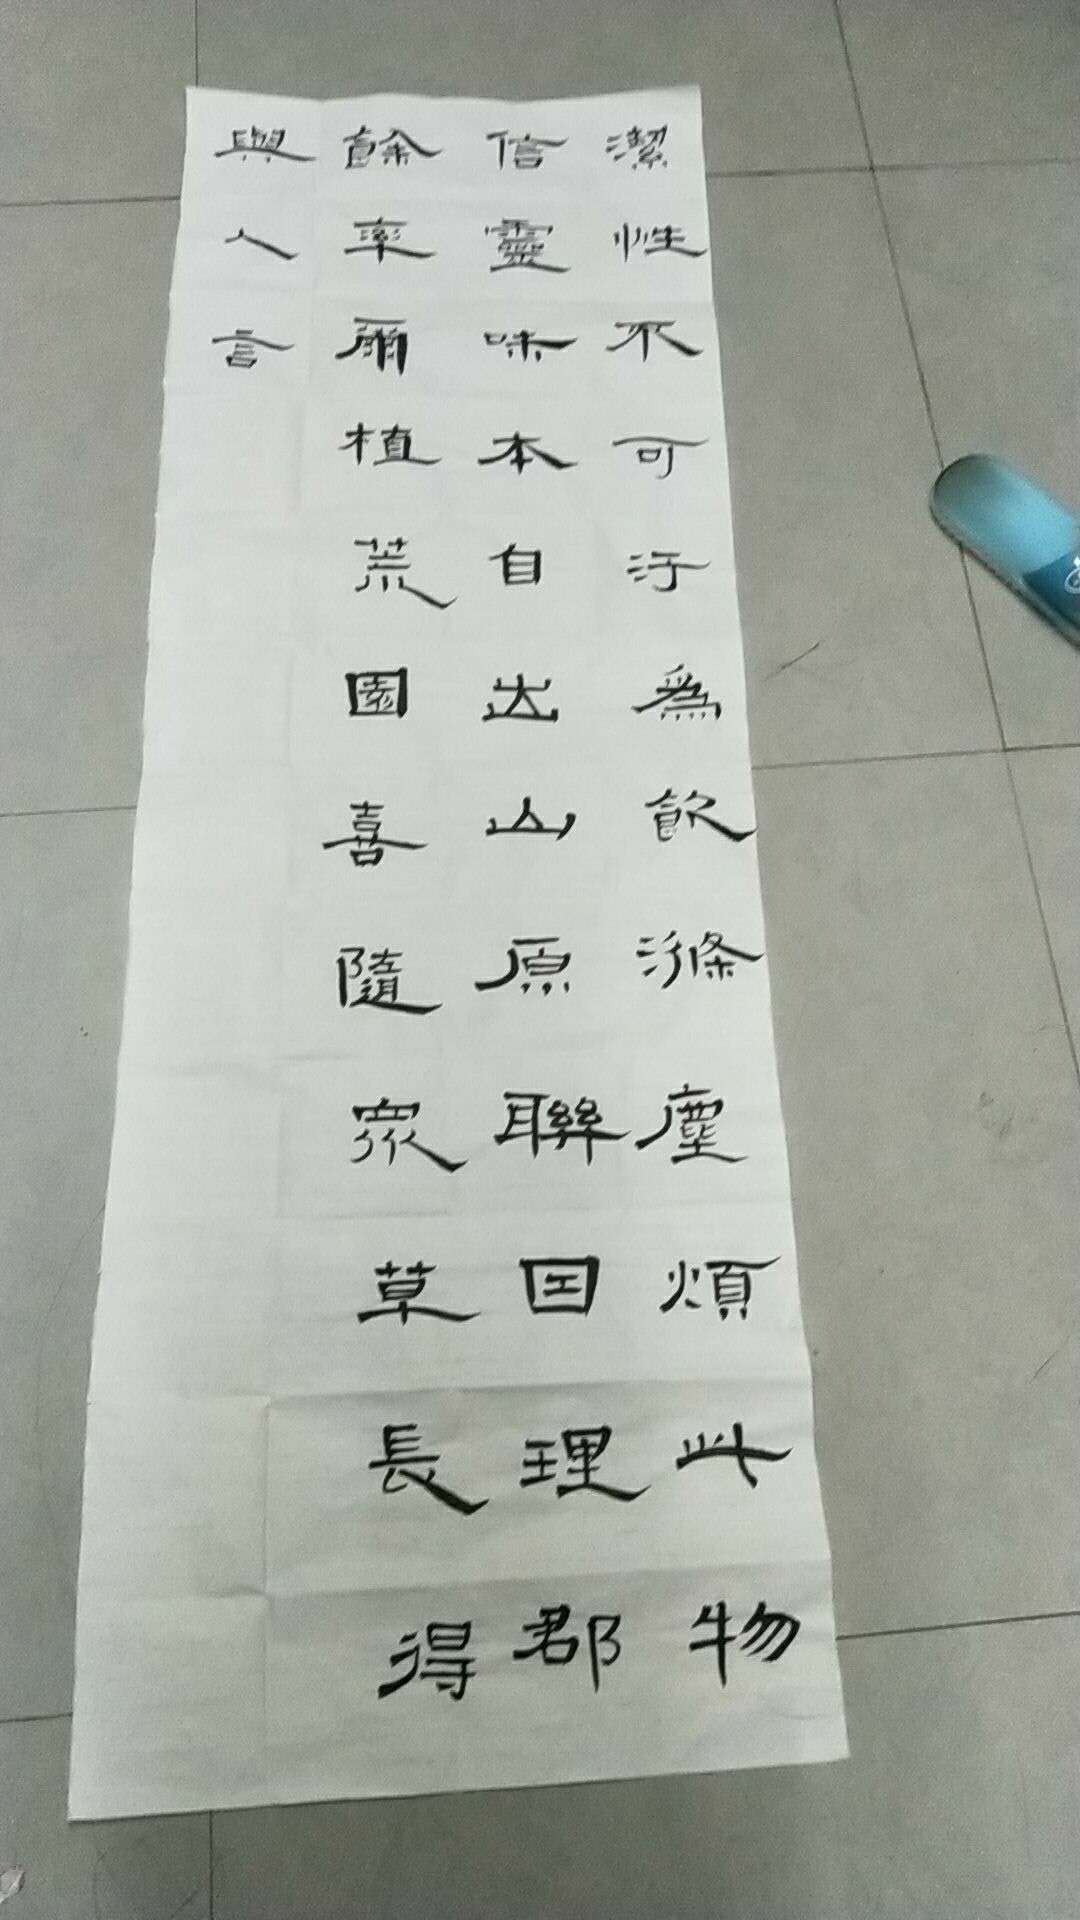 潔性不可汙為飲滌塵煩此物
信靈味本自出山原聯因理郡
餘率爾植荒園喜隨眾草長得
與人言